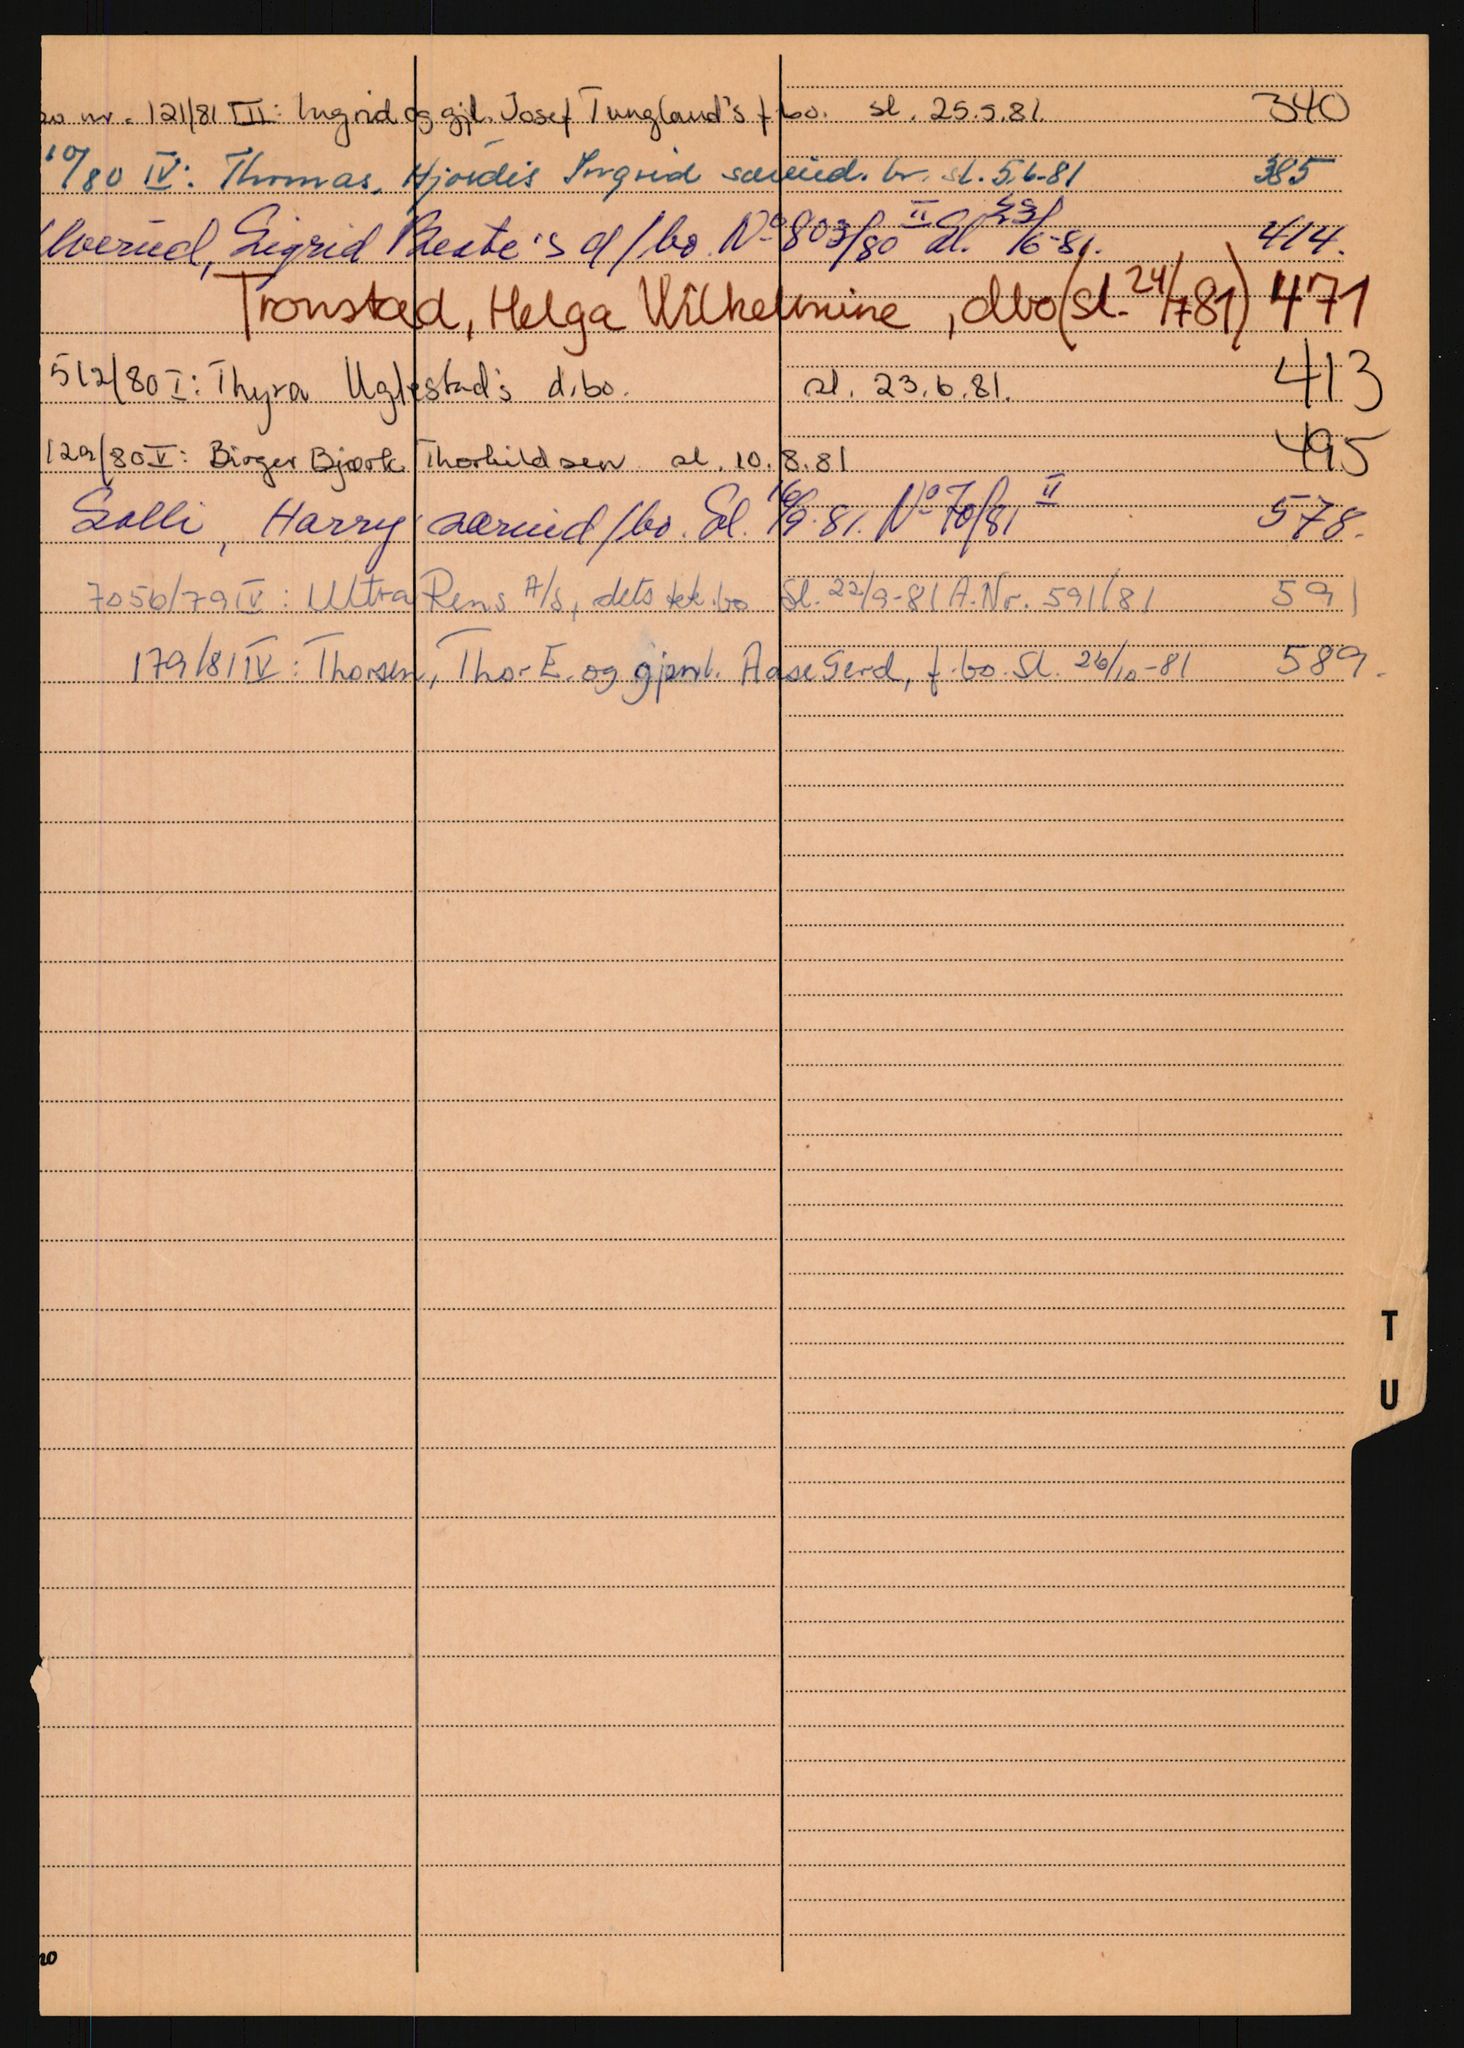 bo nr. 121/81 III: Ingrid og gjl. Josef Tungland's f.bo. sl. 25.5.81. 340
10/80 IV: Thomas, Hjørdis Ingrid særeid. bo. sl. 5.6-81 385
Sigrid Beate's d/bo. No 803/80 II Sl. 23/6-81. 414.
Tronstad, Helga Wilhelmine, dbo (sl. 24/7 81) 471
512/80 I: Thyra Uglestad's d.bo. sl. 23.6.81. 413
129/80 V: Birger Bjørk Thorkildsen sl. 10.8.81 495
Solli, Harry særeid/bo. Sl. 16/9-81. No 70/81 II 578.
7056/79 IV: Ultra Rens A/S, dets kk.bo Sl. 22/9-81 A.Nr. 591/81 591
179/81 IV: Thorsen, Thor E. og gjenl. Aase Gerd, f.bo. Sl. 26/10-81 589.
T
U